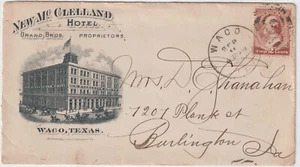 NEW MC CLELLAND
HOTEL
DRAKO, BROS. PROPRIETORS.
WACO, TEXAS.
WACO
Mrs. D. Shanahan
1201 Plank st
Burlington Ia